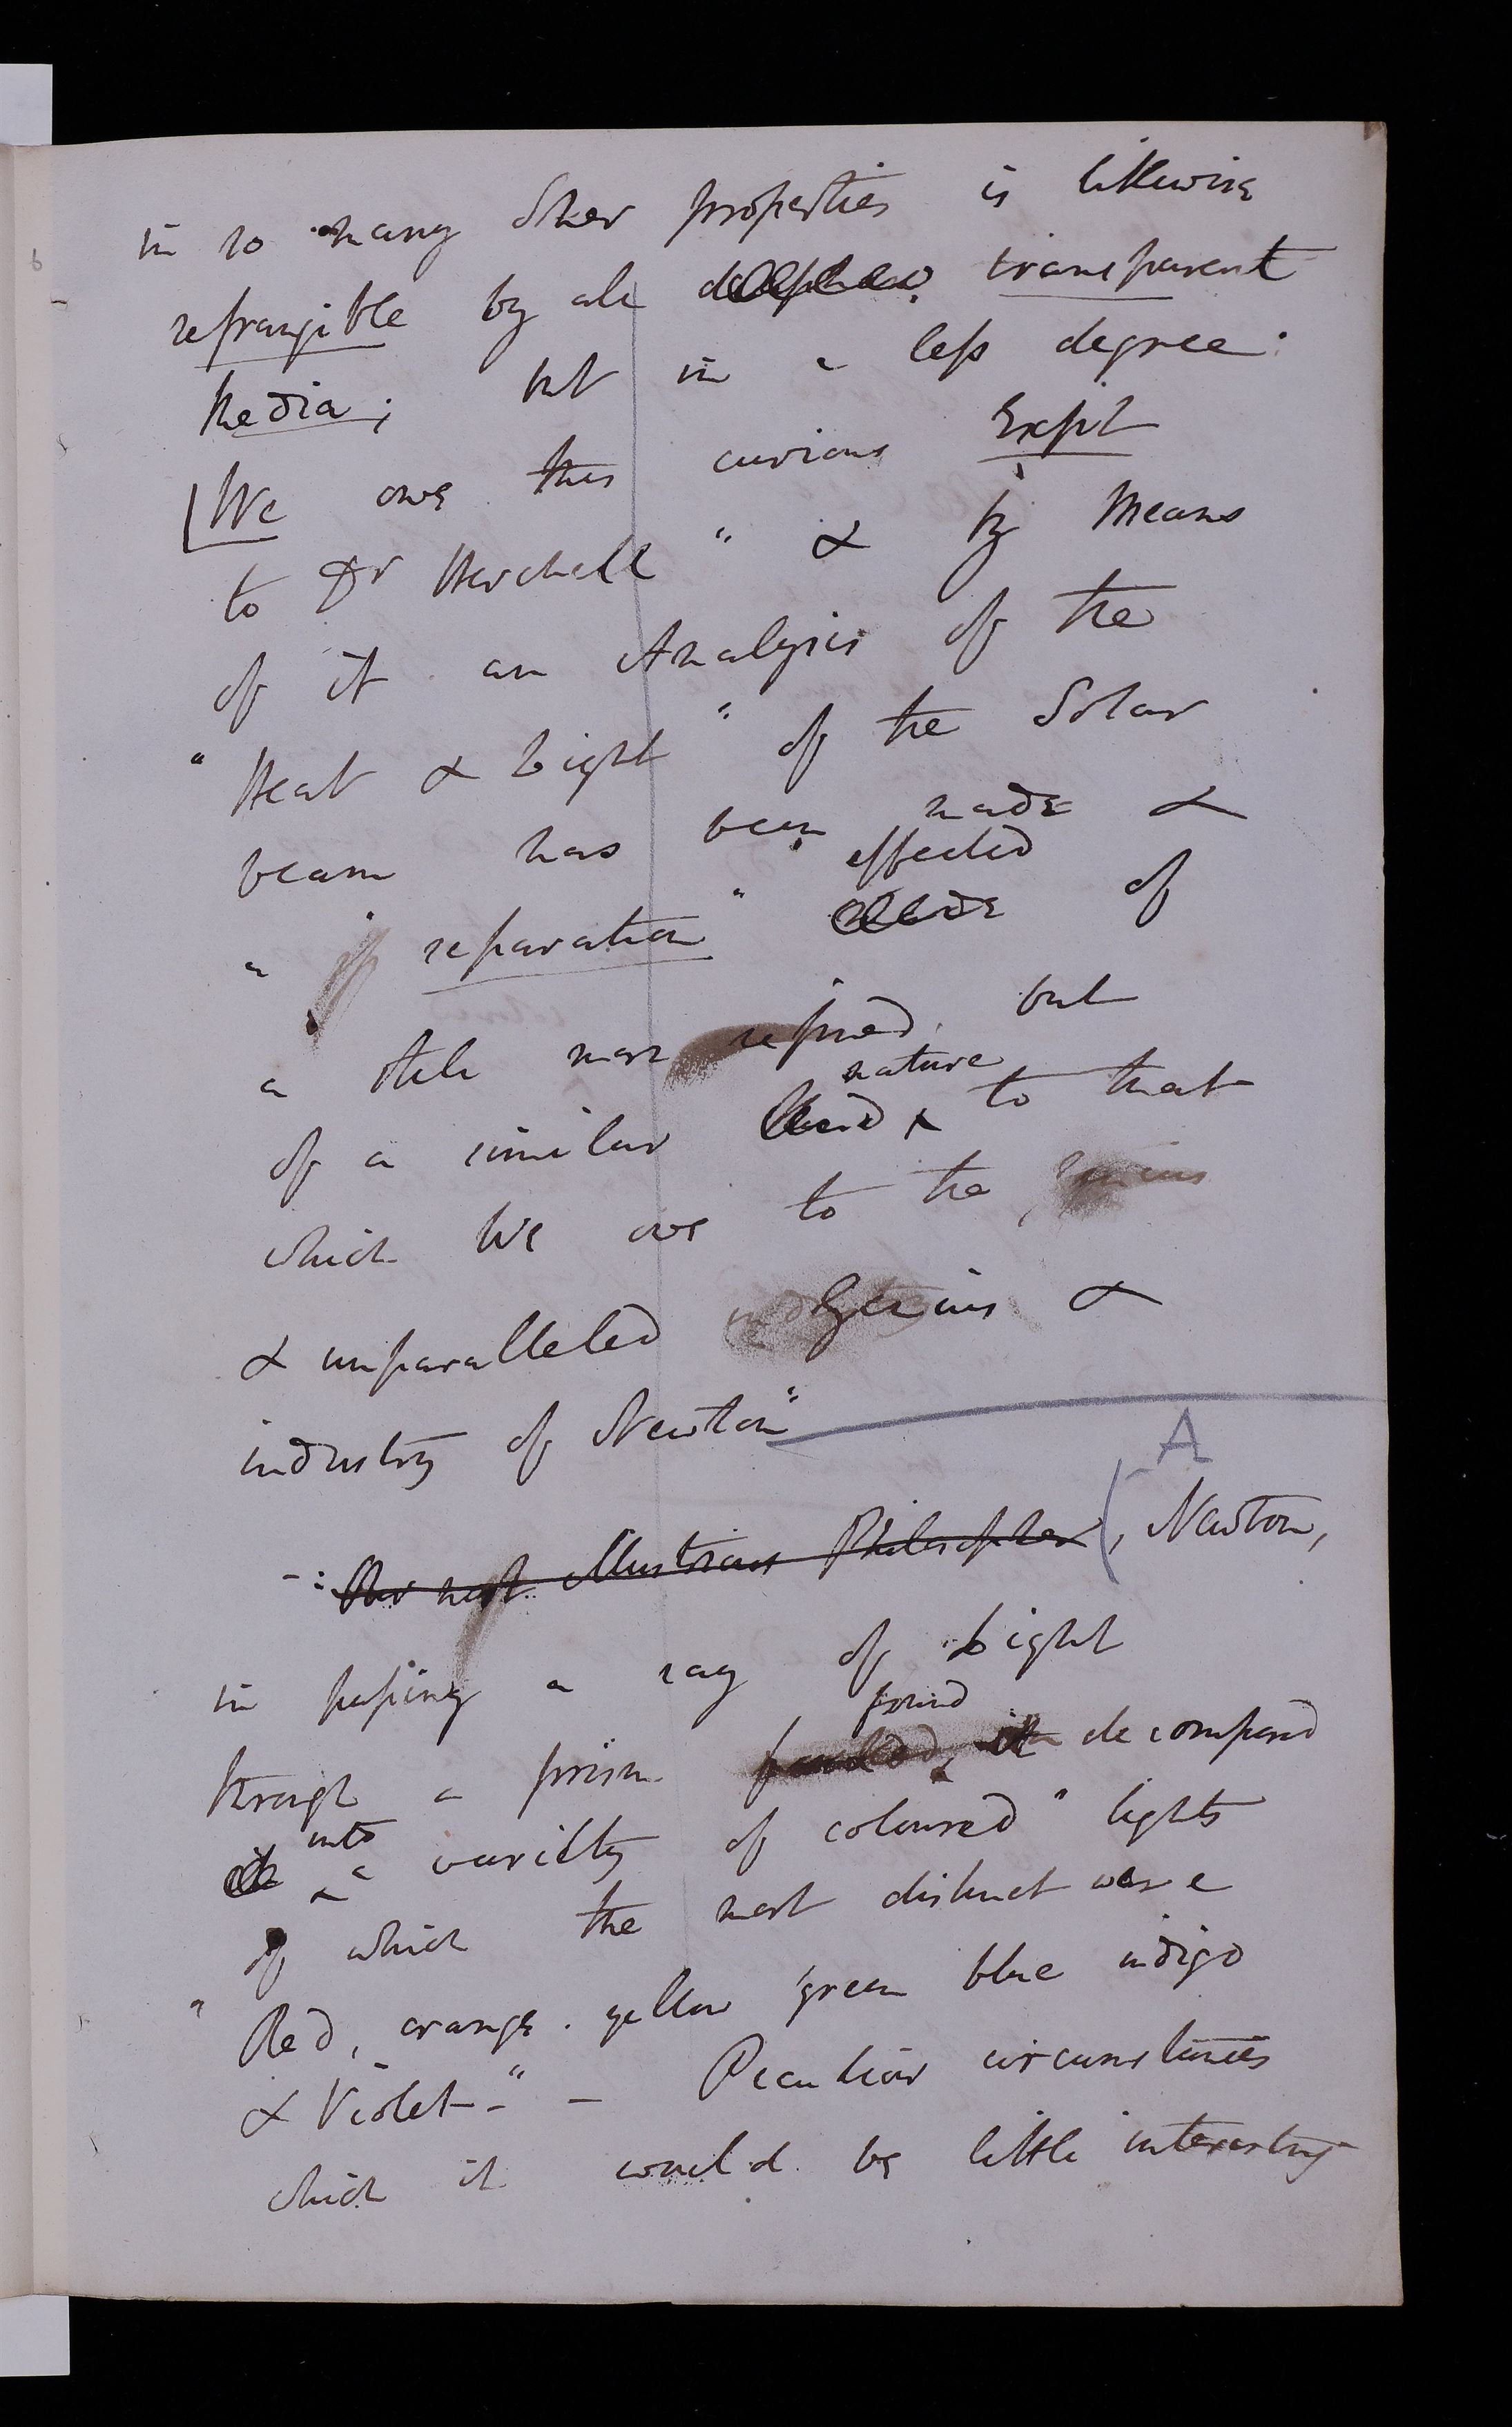 in so many other properties is likewise
refrangible by all transparent
Media; but in a less degree:
We owe this curious Expt
to Dr Herchell " & by Means
of it an Analysis of the
" Heat & Light " of the Solar
beam has been made &
effected
a separation " made of
a still more refined, but
nature
of a similar kind to that
which We owe to the genius
& unparalleled Genius &
industry of Newton"
A
-: Our most illustrious Philosopher (, Newton,
in passing a ray of Light
found
through a prism it decomposed
into
a variety of coloured " lights
of which the most distinct were
" Red, orange. yellow green blue indigo
& Violet-" - Peculiar circumstances
which it would be little interesting